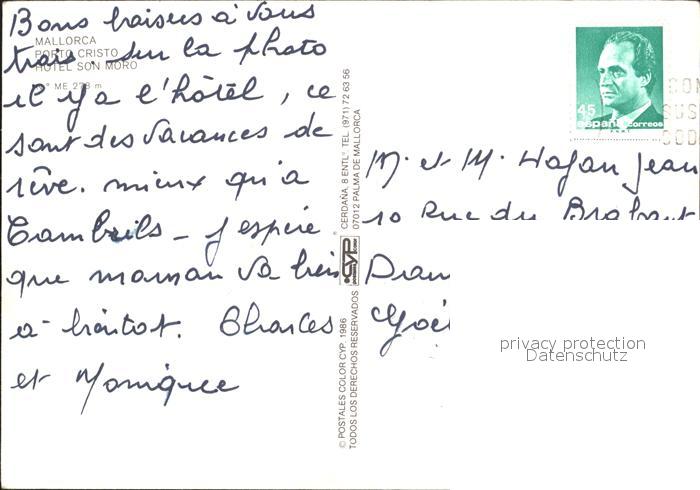 Bons baisers à vous
MALLORCA
trois. sur la photo
PORTO CRISTO
HOTEL SON MORO
il y a l'hôtel, ce
sont des vacances de
rêve. mieux qu'a
Cambrils - j'espère
que maman va bien
a bientot. Charles
et Monique
CERDAÑA, 8 ENTL°. TEL. (971) 72 63 56
07012 PALMA DE MALLORCA
CYP
© POSTALES COLOR CYP, 1986
TODOS LOS DERECHOS RESERVADOS
45
españa correos
CON
SUS
COD
M. et M. Jean
10 Rue du Brabant
privacy protection
Datenschutz